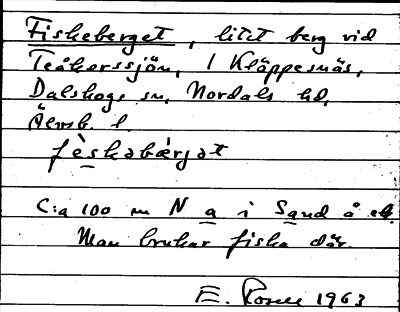 Fiskeberget, litet berg vid
Teåkerssjön, 1 Kläppesnäs,
Dalskogs sn, Nordals hd,
Älvsb. l.
fèskəbær̀jət
C:a 100 m N a i Sand å ek.
Man brukar fiska där.
E. 1963